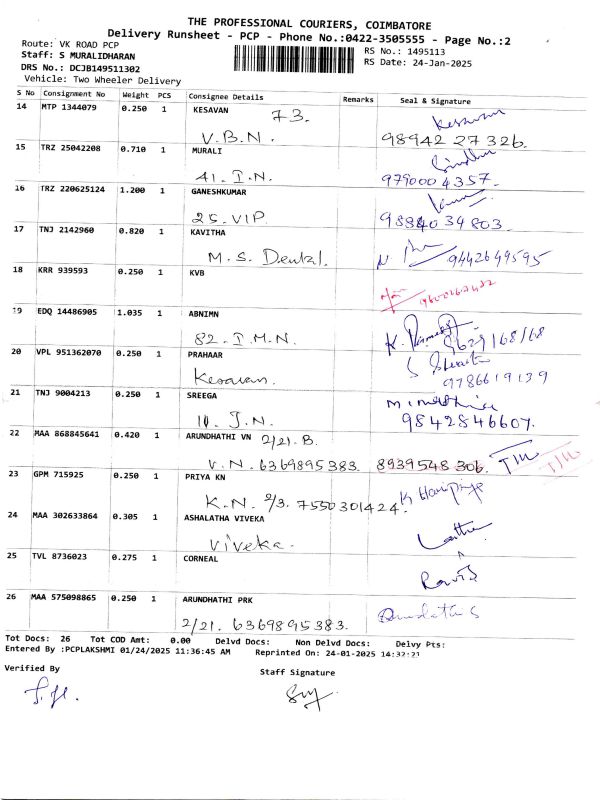 THE PROFESSIONAL COURIERS, COIMBATORE
Delivery Runsheet - PCP - Phone No.:0422-3505555 - Page No.:2
Route: VK ROAD PCP
RS No.: 1495113
Staff: S MURALIDHARAN
RS Date: 24-Jan-2025
DRS No.: DCJB149511302
Vehicle: Two Wheeler Delivery
S No Consignment No Weight PCS Consignee Details Remarks Seal & Signature
14 MTP 1344079 0.250 1 KESAVAN 73. Kesavan
V.B.N. 98942 27326.
15 TRZ 25042208 0.710 1 MURALI
41. I.N. 9790004357.
16 TRZ 220625124 1.200 1 GANESHKUMAR
25. VIP. 9884034803.
17 TNJ 2142960 0.820 1 KAVITHA
M.S. Dental. 9442649595
18 KRR 939593 0.250 1 KVB
19 EDQ 14486905 1.035 1 ABNIMN
82. I.M.N. 9629168168
20 VPL 951362070 0.250 1 PRAHAAR
Kesavan. 9786619139
21 TNJ 9004213 0.250 1 SREEGA
10. J.N. 9842846607.
22 MAA 868845641 0.420 1 ARUNDHATHI VN 2/21. B.
V.N. 6369895383. 8939548306.
23 GPM 715925 0.250 1 PRIYA KN
K.N. 2/3. 7550301424. K Haripriya
24 MAA 302633864 0.305 1 ASHALATHA VIVEKA
Viveka.
25 TVL 8736023 0.275 1 CORNEAL
26 MAA 575098865 0.250 1 ARUNDHATHI PRK
2/21. 6369895383. Arundathi S
Tot Docs: 26 Tot COD Amt: 0.00 Delvd Docs: Non Delvd Docs: Delvy Pts:
Entered By :PCPLAKSHMI 01/24/2025 11:36:45 AM Reprinted On: 24-01-2025 14:32:21
Verified By
Staff Signature